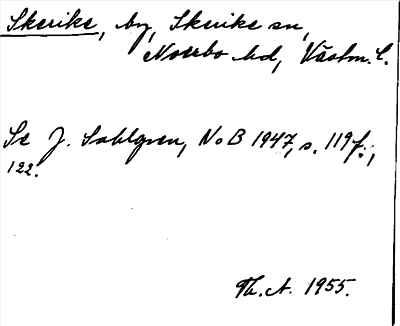 Skerike, by, Skerike sn,
Norrbo hd, Västm. l.
Se J. Sahlgren, NoB 1947, s. 119 f.,
122.
Th. A. 1955.